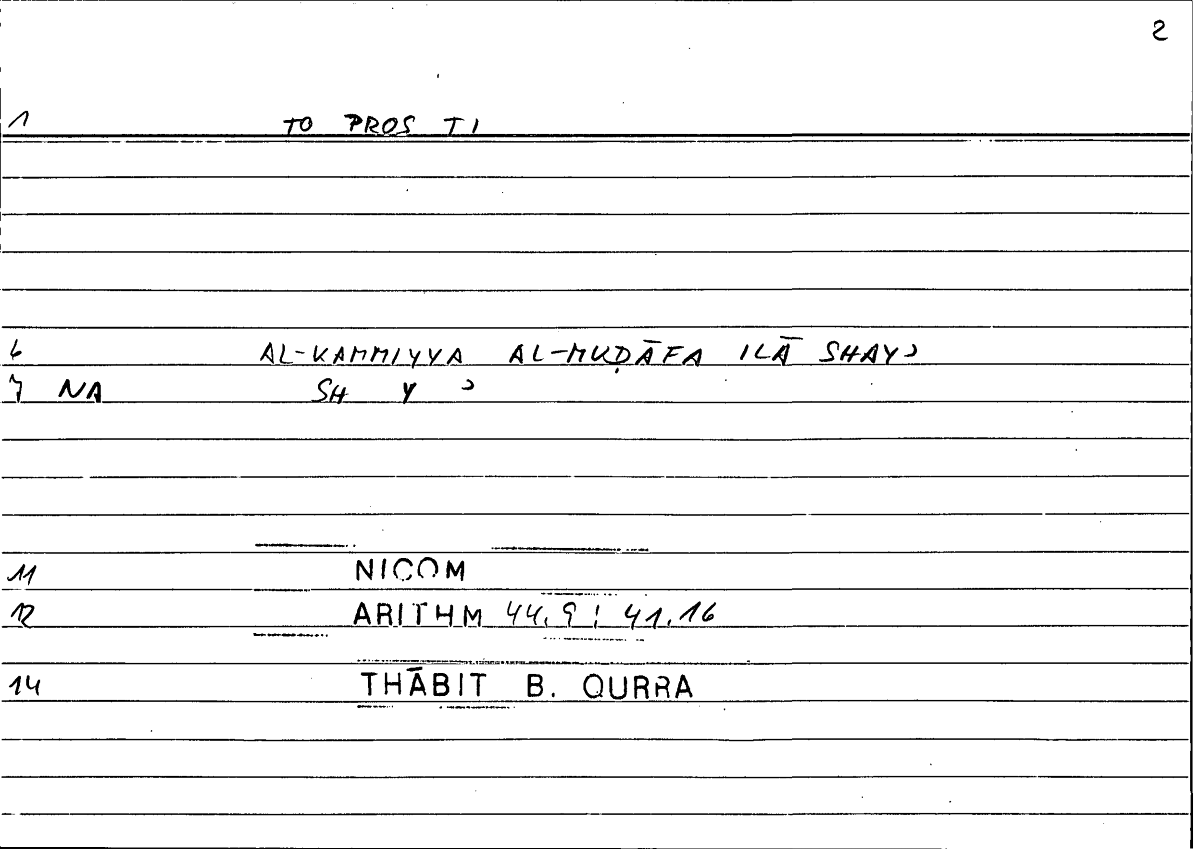 2
1 TO PROS TI
6 AL-KAMMIYYA AL-MUḌĀFA ILĀ SHAYʾ
7 NA SH Y ʾ
11 NICOM
12 ARITHM 44.9 ; 41.16
14 THĀBIT B. QURRA